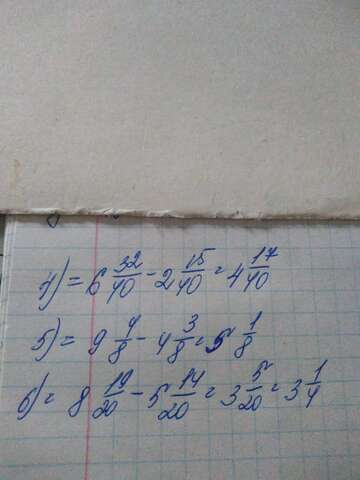 4) = 6 32/40 - 2 15/40 = 4 17/40
5) = 9 4/8 - 4 3/8 = 5 1/8
6) = 8 19/20 - 5 14/20 = 3 5/20 = 3 1/4